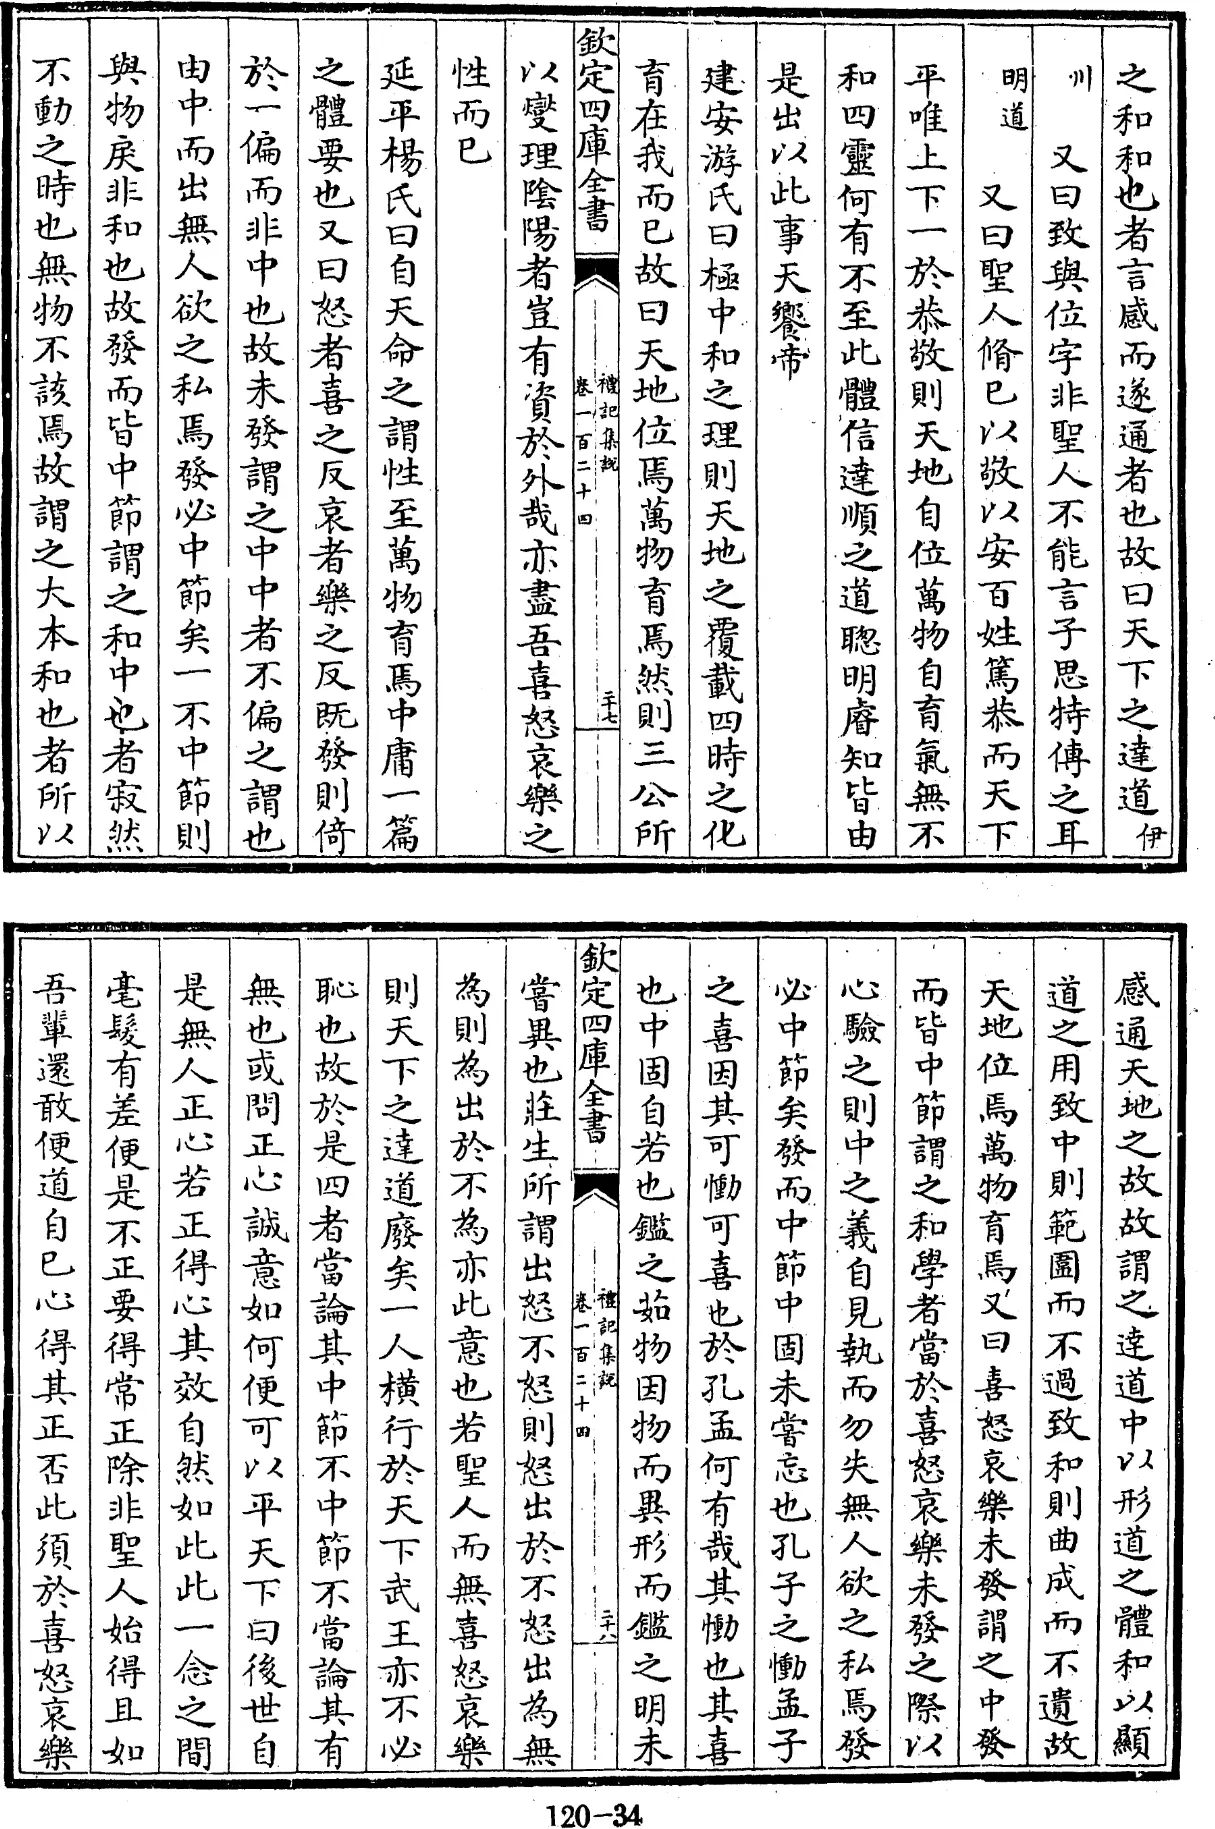 之和和也者言感而遂通者也故曰天下之達道伊
川　又曰致與位字非聖人不能言子思特傳之耳
明道　又曰聖人脩己以敬以安百姓篤恭而天下
平唯上下一於恭敬則天地自位萬物自育氣無不
和四靈何有不至此體信達順之道聰明睿知皆由
是出以此事天饗帝
建安游氏曰極中和之理則天地之覆載四時之化
育在我而已故曰天地位焉萬物育焉然則三公所
欽定四庫全書　禮記集說 卷一百二十四　二十七
以燮理陰陽者豈有資於外哉亦盡吾喜怒哀樂之
性而已
延平楊氏曰自天命之謂性至萬物育焉中庸一篇
之體要也又曰怒者喜之反哀者樂之反既發則倚
於一偏而非中也故未發謂之中中者不偏之謂也
由中而出無人欲之私焉發必中節矣一不中節則
與物戾非和也故發而皆中節謂之和中也者寂然
不動之時也無物不該焉故謂之大本和也者所以
感通天地之故故謂之達道中以形道之體和以顯
道之用致中則範圍而不過致和則曲成而不遺故
天地位焉萬物育焉又曰喜怒哀樂未發謂之中發
而皆中節謂之和學者當於喜怒哀樂未發之際以
心驗之則中之義自見執而勿失無人欲之私焉發
必中節矣發而中節中固未嘗忘也孔子之慟孟子
之喜因其可慟可喜也於孔孟何有哉其慟也其喜
也中固自若也鑑之茹物因物而異形而鑑之明未
欽定四庫全書　禮記集說 卷一百二十四　二十八
嘗異也莊生所謂出怒不怒則怒出於不怒出為無
為則為出於不為亦此意也若聖人而無喜怒哀樂
則天下之達道廢矣一人橫行於天下武王亦不必
恥也故於是四者當論其中節不中節不當論其有
無也或問正心誠意如何便可以平天下曰後世自
是無人正心若正得心其效自然如此此一念之間
毫髮有差便是不正要得常正除非聖人始得且如
吾輩還敢便道自己心得其正否此須於喜怒哀樂
120-34